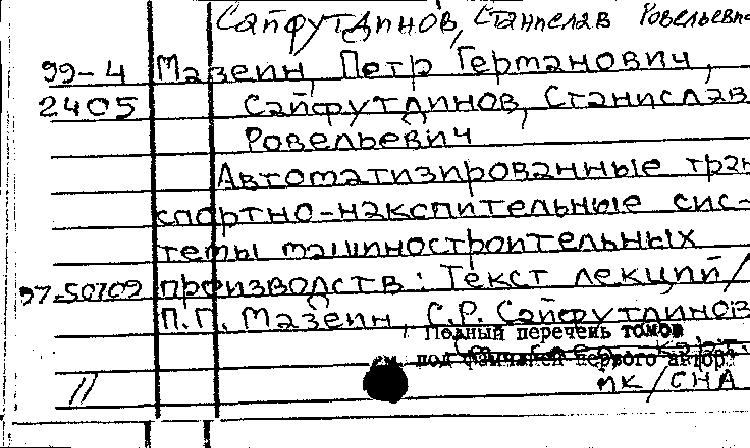 Сайфутдинов, Станислав Ровельевич
99-4 Мазеин, Петр Германович,
2405 Сайфутдинов, Станислав
Ровельевич
Автоматизированные тран
спортно-накопительные сис-
темы машиностроительных
97-50109 производств: Текст лекций/
П.Г. Мазеин, С.Р. Сайфутдинов
Полный перечень томов
см. под фамилией первого автора
11 ПК/СНА